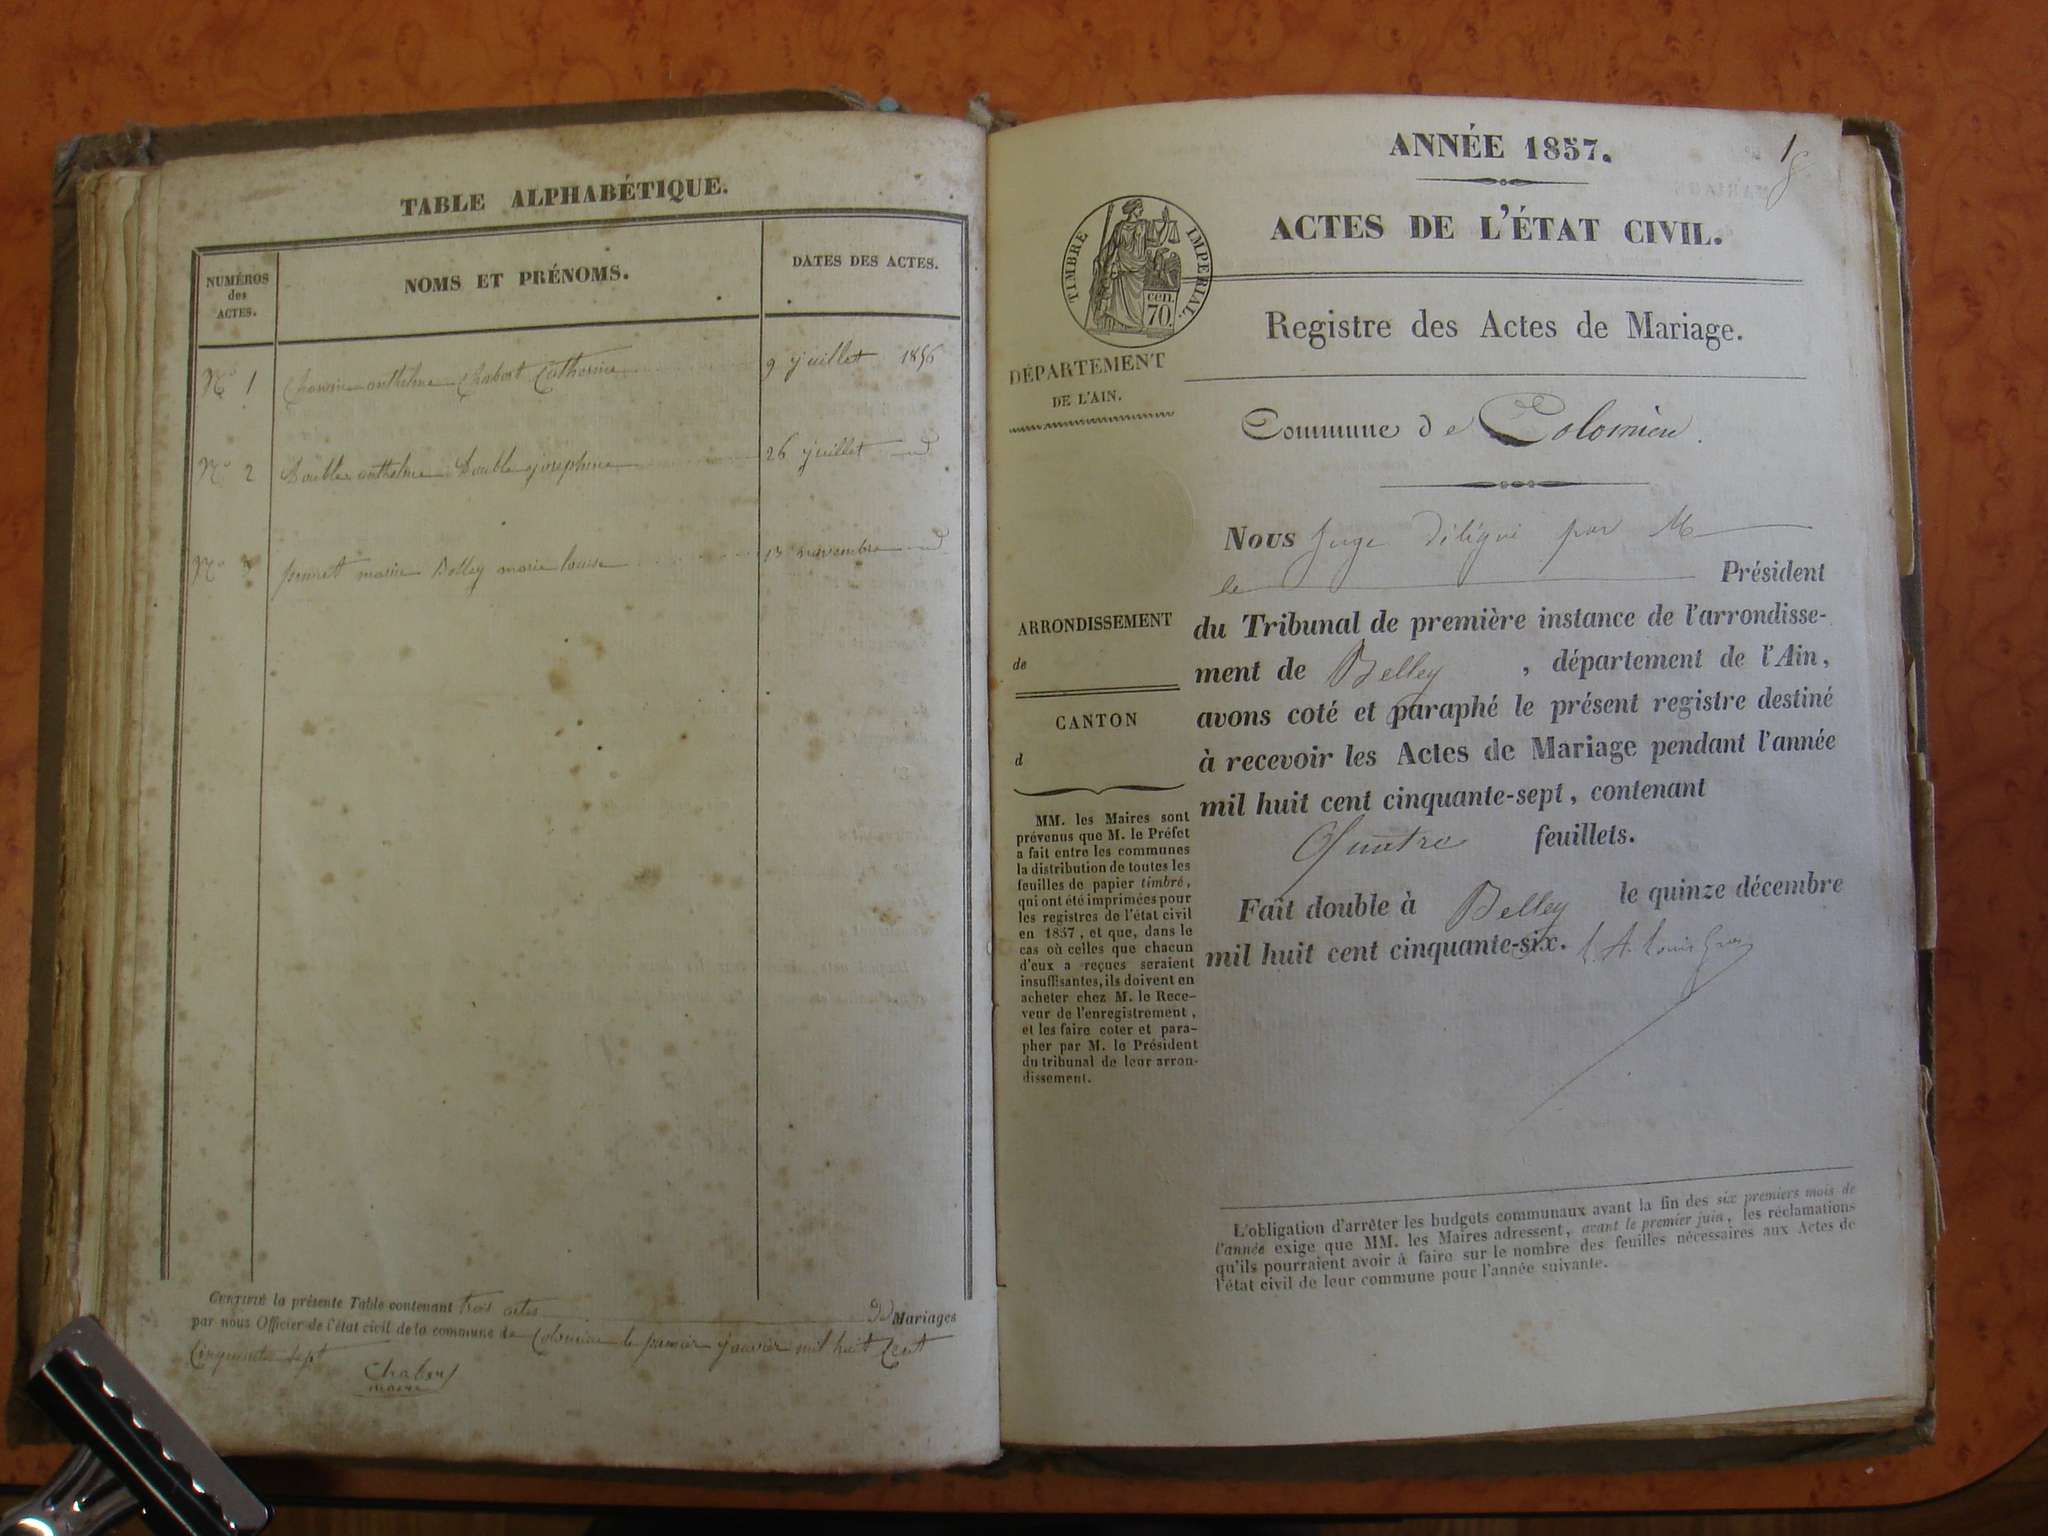 TABLE ALPHABÉTIQUE.
NUMÉROS
des
ACTES.
NOMS ET PRÉNOMS.
DATES DES ACTES.
No 1 anthelme Chabert Catherine 9 juillet 1856
No 2 Double anthelme Double josephine 26 juillet id
No 3 marie Belley marie louise 13 novembre id
CERTIFIÉ la présente Table contenant trois actes de Mariages
par nous Officier de l'état civil de la commune de Colomieu le premier janvier mil huit Cent
Cinquante Sept
Chabert
maire
ANNÉE 1857.
1
ACTES DE L'ÉTAT CIVIL.
TIMBRE IMPERIAL.
cen.
70.
Registre des Actes de Mariage.
DÉPARTEMENT
DE L'AIN.
Commune de Colomieu.
Nous Juge délégué par M
le Président
du Tribunal de première instance de l'arrondisse-
ment de Belley, département de l'Ain,
avons coté et paraphé le présent registre destiné
à recevoir les Actes de Mariage pendant l'année
mil huit cent cinquante-sept, contenant
Quatre feuillets.
Fait double à Belley le quinze décembre
mil huit cent cinquante-six.
ARRONDISSEMENT
de
CANTON
d
MM. les Maires sont
prévenus que M. le Préfet
a fait entre les communes
la distribution de toutes les
feuilles de papier timbré,
qui ont été imprimées pour
les registres de l'état civil
en 1857, et que, dans le
cas où celles que chacun
d'eux a reçues seraient
insuffisantes, ils doivent en
acheter chez M. le Rece-
veur de l'enregistrement,
et les faire coter et para-
pher par M. le Président
du tribunal de leur arron-
dissement.
L'obligation d'arrêter les budgets communaux avant la fin des six premiers mois de
l'année exige que MM. les Maires adressent, avant le premier juin, les réclamations
qu'ils pourraient avoir à faire sur le nombre des feuilles nécessaires aux Actes de
l'état civil de leur commune pour l'année suivante.